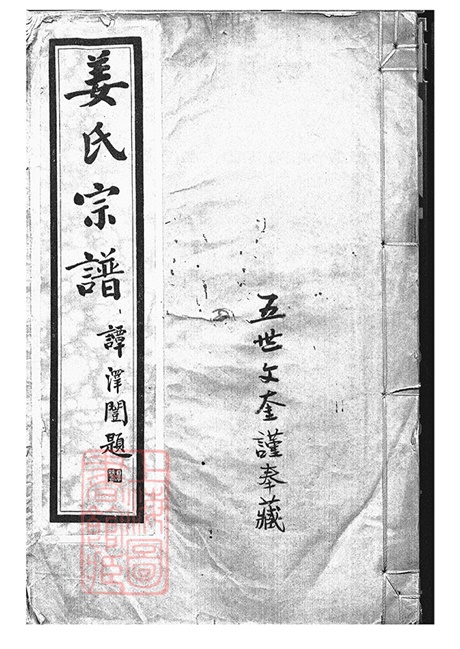 五世文奎謹奉藏
姜氏宗譜
譚澤闓題